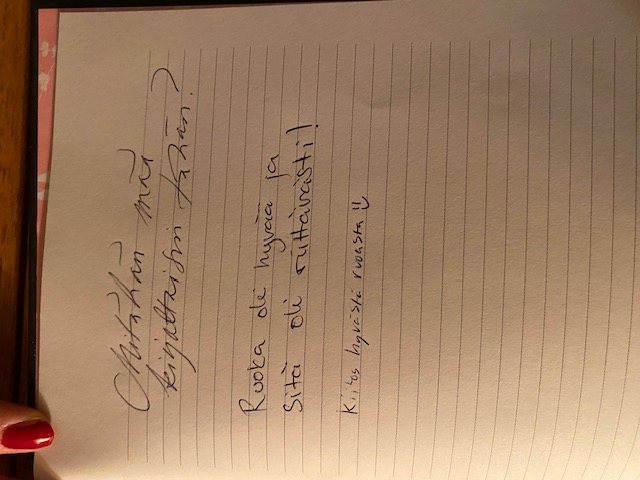 Mitähän mää
kirjottaisin tähän?
Ruoka oli hyvää ja
sitä oli riittävästi!
Kiitos hyvästä ruoasta